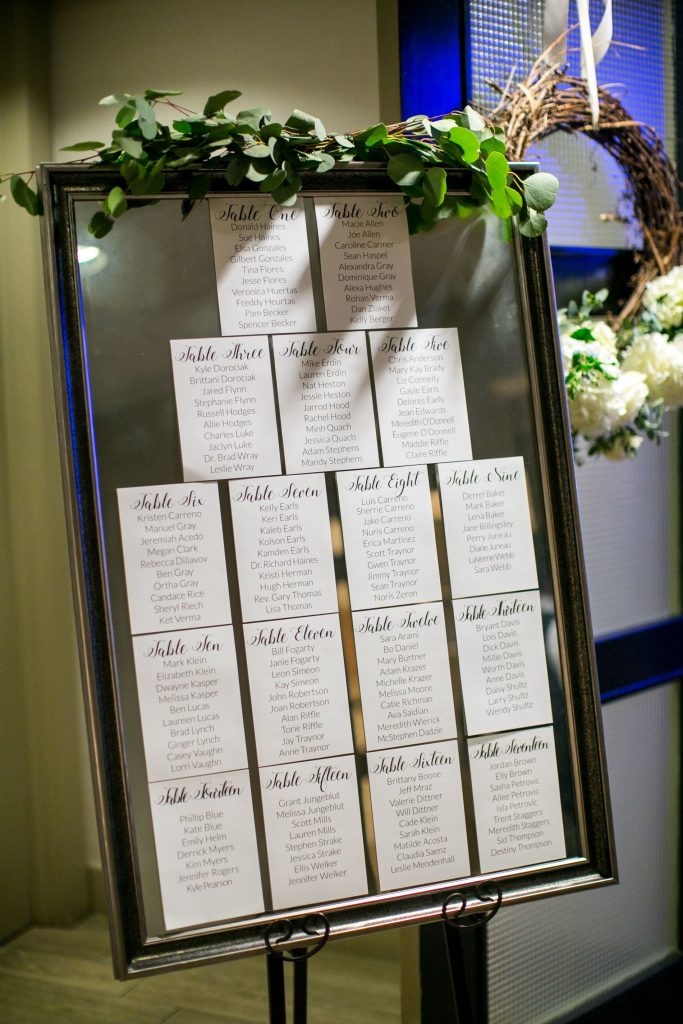 Table One
Donald Haines
Sue Haines
Elsa Gonzales
Gilbert Gonzales
Tina Flores
Jesse Flores
Veronica Huertas
Freddy Heurtas
Pam Becker
Spencer Becker
Table Two
Macie Allen
Joe Allen
Caroline Carmer
Sean Haspel
Alexandra Gray
Dominique Gray
Alexa Hughes
Rohan Verma
Dan Zlaket
Kelly Berger
Table Three
Kyle Dorociak
Brittani Dorociak
Jared Flynn
Stephanie Flynn
Russell Hodges
Allie Hodges
Charles Luke
Jaclyn Luke
Dr. Brad Wray
Leslie Wray
Table Four
Mike Erdin
Lauren Erdin
Nat Heston
Jessie Heston
Jarrod Hood
Rachel Hood
Minh Quach
Jessica Quach
Adam Stephens
Mandy Stephens
Table Five
Chris Anderson
Mary Kay Brady
Liz Connelly
Gayle Earls
Delores Earls
Jean Edwards
Meredith O'Donnell
Eugene O'Donnell
Maddie Riffle
Claire Riffle
Table Six
Kristen Carreno
Manuel Gray
Jeremiah Acedo
Megan Clark
Rebecca Dillavov
Ben Gray
Ortha Gray
Candace Rice
Sheryl Riech
Ket Verma
Table Seven
Kelly Earls
Keri Earls
Kaleb Earls
Kolson Earls
Kamden Earls
Dr. Richard Haines
Kristi Herman
Hugh Herman
Rev. Gary Thomas
Lisa Thomas
Table Eight
Luis Carreno
Sherrie Carreno
Jake Carreno
Nuris Carreno
Erica Martinez
Scott Traynor
Gwen Traynor
Jimmy Traynor
Sean Traynor
Noris Zeron
Table Nine
Derrel Baker
Mark Baker
Lena Baker
Jane Billingsley
Perry Juneau
Diane Juneau
LaVerne Webb
Sara Webb
Table Ten
Mark Klein
Elizabeth Klein
Dwayne Kasper
Melissa Kasper
Ben Lucas
Laureen Lucas
Brad Lynch
Ginger Lynch
Casey Vaughn
Lorri Vaughn
Table Eleven
Bill Fogarty
Janie Fogarty
Leon Simeon
Kay Simeon
John Robertson
Joan Robertson
Alan Riffle
Torie Riffle
Jay Traynor
Anne Traynor
Table Twelve
Sara Arami
Bo Daniel
Mary Burtner
Adam Krazer
Michelle Krazer
Melissa Moore
Catie Richman
Ava Saidian
Meredith Wierick
McStephen Dadzie
Table Thirteen
Bryant Davis
Lois Davis
Dick Davis
Millie Davis
Worth Davis
Anne Davis
Daisy Shultz
Larry Shultz
Wendy Shultz
Table Fourteen
Phillip Blue
Kate Blue
Emily Helm
Derrick Myers
Kim Myers
Jennifer Rogers
Kyle Pearson
Table Fifteen
Grant Jungeblut
Melissa Jungeblut
Scott Mills
Lauren Mills
Stephen Strake
Jessica Strake
Ellis Welker
Jennifer Welker
Table Sixteen
Brittany Boone
Jeff Mraz
Valerie Dittner
Will Dittner
Cade Klein
Sarah Klein
Matilde Acosta
Claudia Saenz
Leslie Mendenhall
Table Seventeen
Jordan Brown
Elly Brown
Sasha Petrovic
Ailee Petrovic
Isla Petrovic
Trent Staggers
Meredith Staggers
Sid Thompson
Destiny Thompson